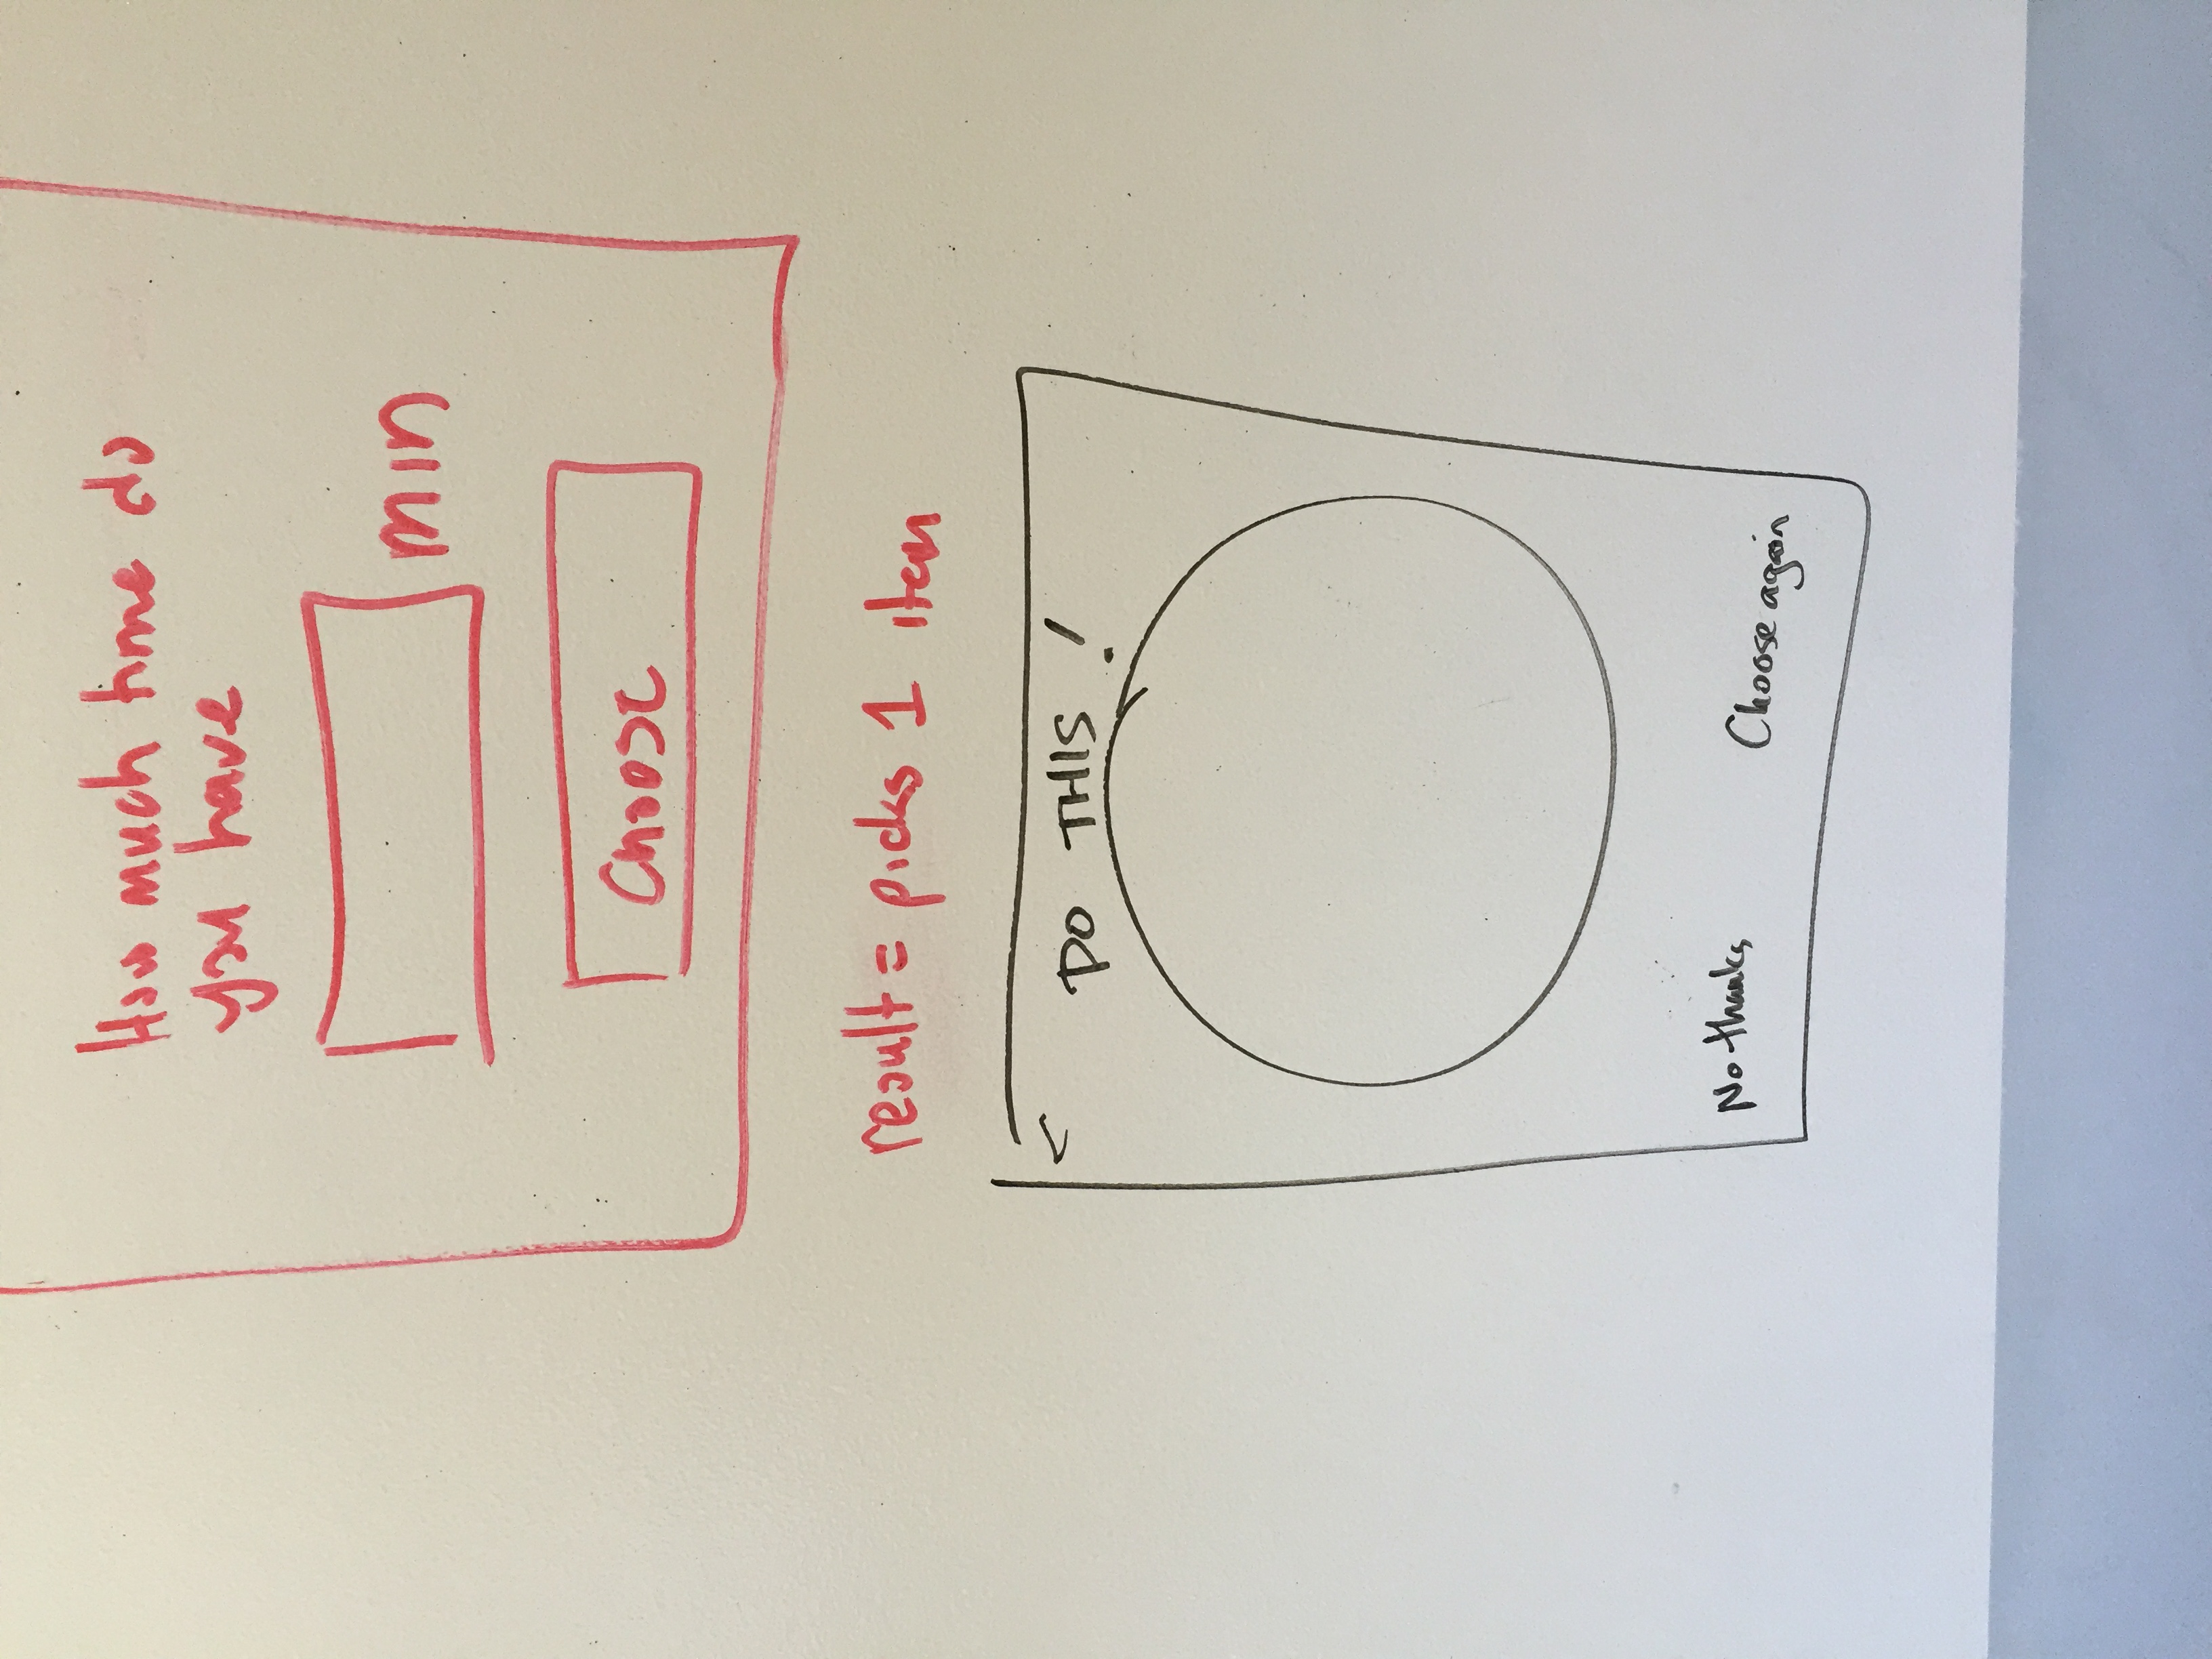 How much time do
you have
min
Choose
result = picks 1 item
< DO THIS !
No thanks
Choose again